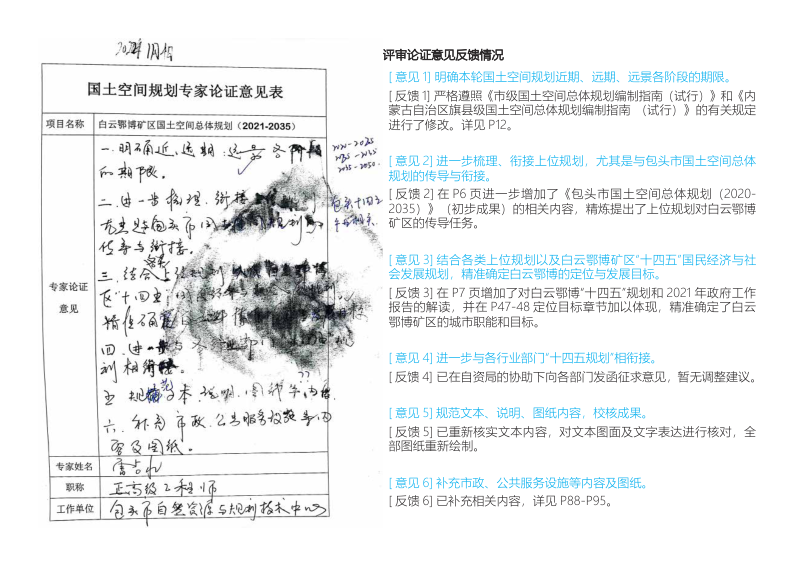 国土空间规划专家论证意见表
项目名称 白云鄂博矿区国土空间总体规划（2021-2035）
一.明确近、远期、远景各阶段
的期限。
2035-2050.
二.进一步梳理、衔接
传导与衔接。
专家论证
意见
三.结合
四.进一步与
划相衔接。
五.规范文本、说明、图纸等内容
六.补充市政、公共服务设施等内
容及图纸。
专家姓名
职称 正高级工程师
工作单位 包头市自然资源与规划技术中心
评审论证意见反馈情况
[ 意见 1] 明确本轮国土空间规划近期、远期、远景各阶段的期限。
[ 反馈 1] 严格遵照《市级国土空间总体规划编制指南（试行）》和《内
蒙古自治区旗县级国土空间总体规划编制指南 （试行）》的有关规定
进行了修改。详见 P12。
[ 意见 2] 进一步梳理、衔接上位规划，尤其是与包头市国土空间总体
规划的传导与衔接。
[ 反馈 2] 在 P6 页进一步增加了《包头市国土空间总体规划（2020-
2035）》（初步成果）的相关内容，精炼提出了上位规划对白云鄂博
矿区的传导任务。
[ 意见 3] 结合各类上位规划以及白云鄂博矿区“十四五”国民经济与社
会发展规划，精准确定白云鄂博的定位与发展目标。
[ 反馈 3] 在 P7 页增加了对白云鄂博“十四五”规划和 2021 年政府工作
报告的解读，并在 P47-48 定位目标章节加以体现，精准确定了白云
鄂博矿区的城市职能和目标。
[ 意见 4] 进一步与各行业部门“十四五规划”相衔接。
[ 反馈 4] 已在自资局的协助下向各部门发函征求意见，暂无调整建议。
[ 意见 5] 规范文本、说明、图纸内容，校核成果。
[ 反馈 5] 已重新核实文本内容，对文本图面及文字表达进行核对，全
部图纸重新绘制。
[ 意见 6] 补充市政、公共服务设施等内容及图纸。
[ 反馈 6] 已补充相关内容，详见 P88-P95。